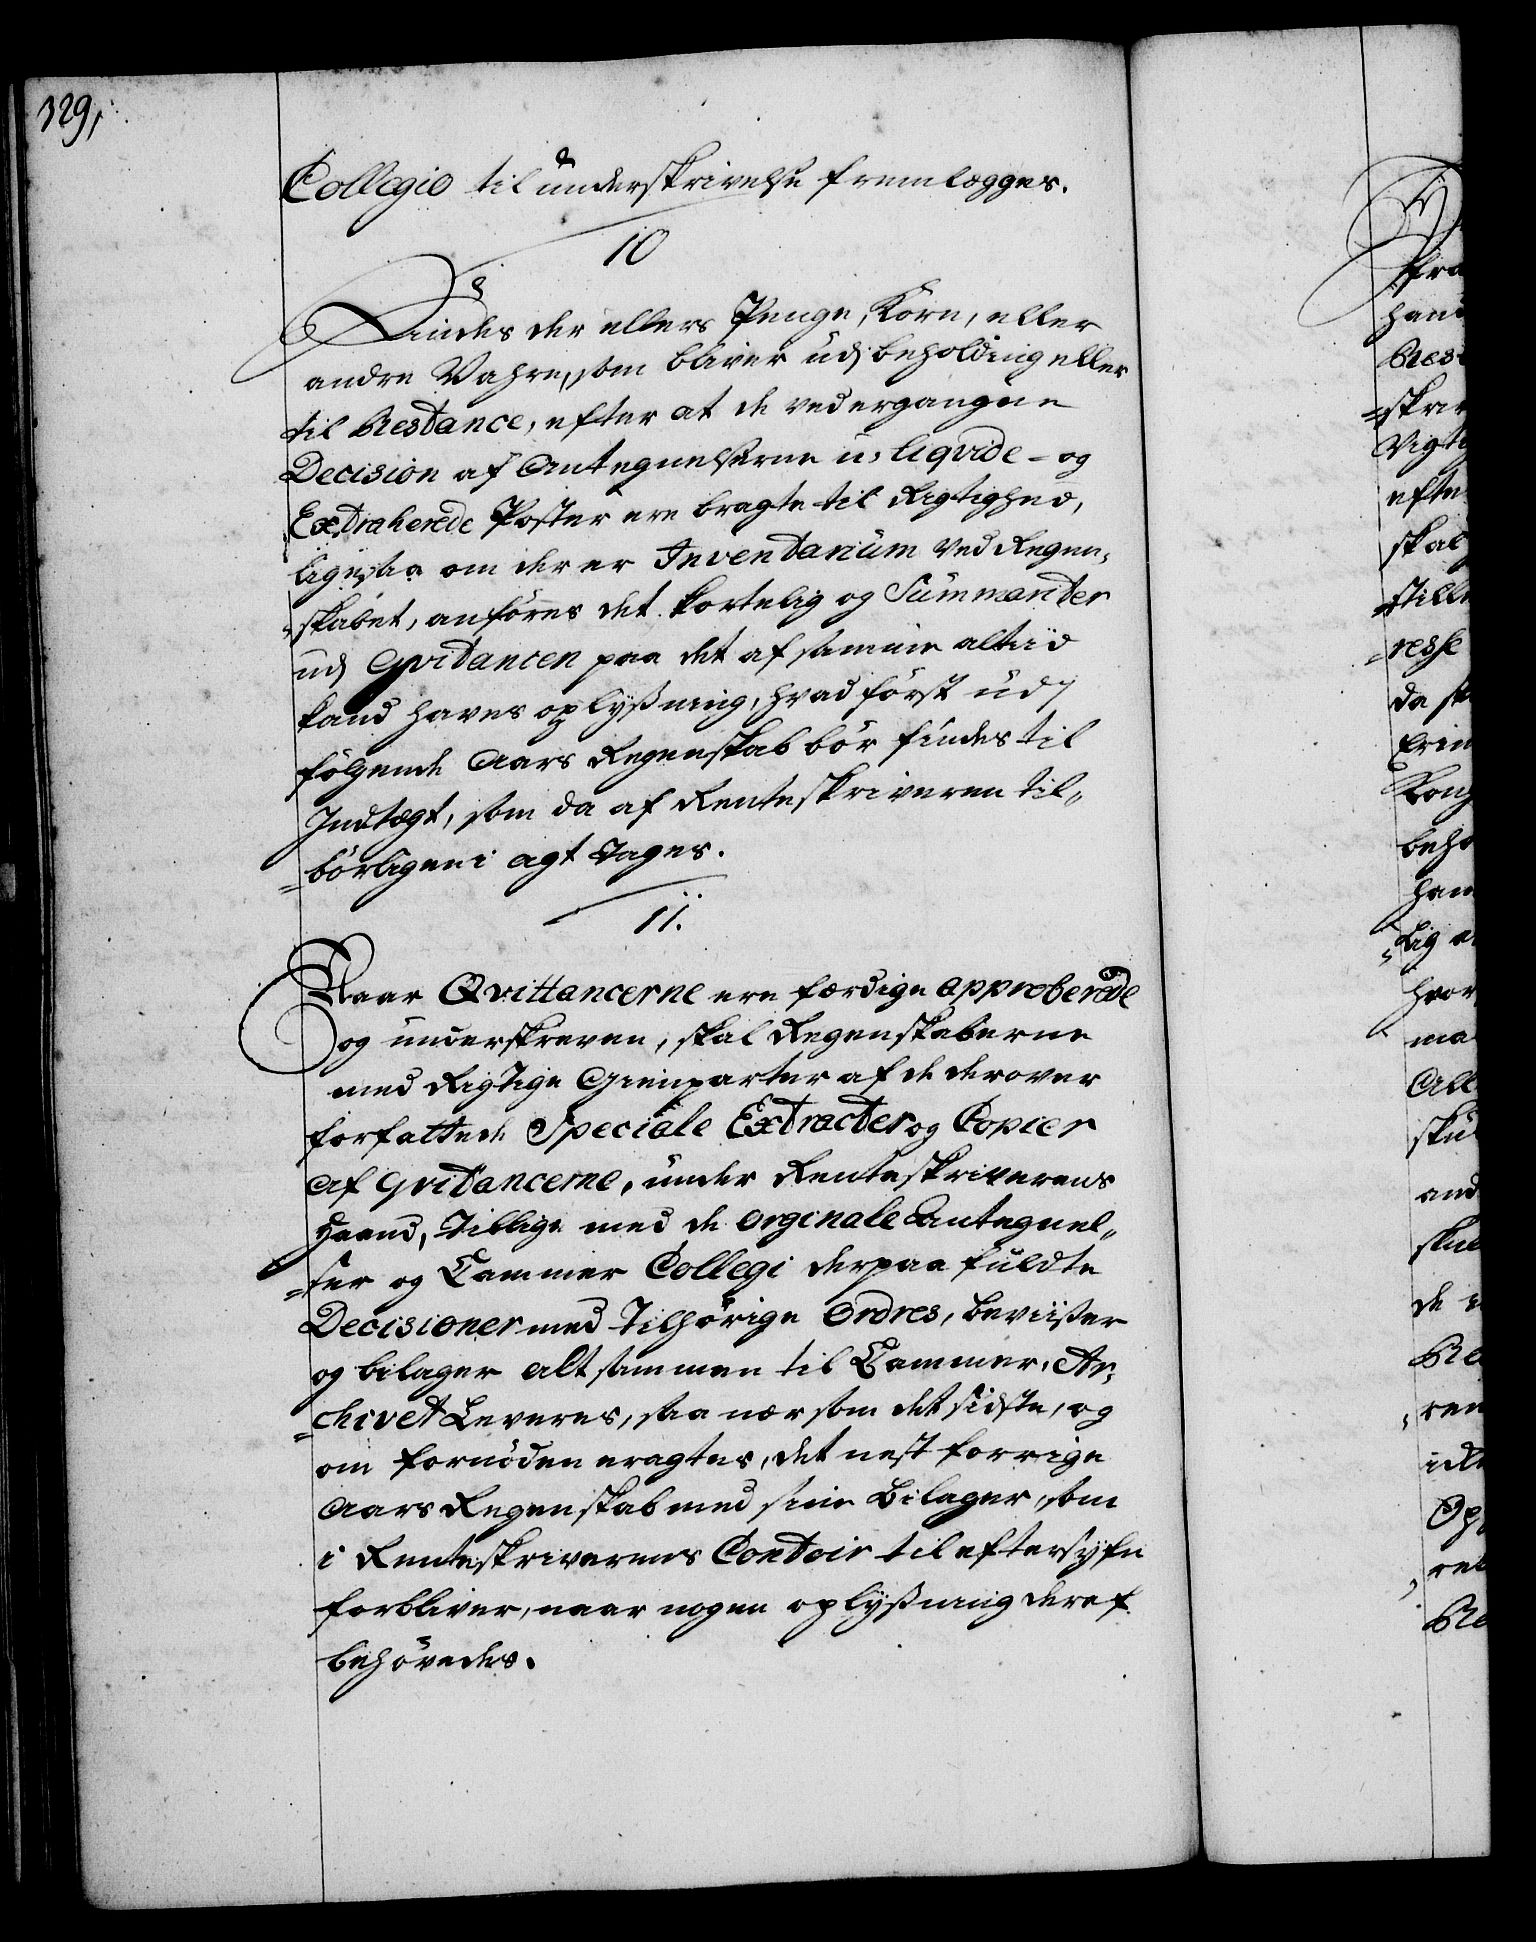 329,
Collegio til underskrivelse fremlægges.
10
Findes der ellers Penge, Korn, eller
andre Vahre, som bliver udj beholding eller
til Restance, efter at de ved ergangne
Decision af Antegnelserne u-liqvide - og
Extraherede Poster ere bragte til Rigtighed,
ligesaa om der er Inventarium ved Regen-
skabet, anföres det kortelig og Summanter
udj Qvitancen paa det af samme altiid
kand haves oplysning, hvad först udj
fölgende Aars Regenskab bör findes til
Indtægt, som da af Renteskriveren til-
börligen i agt tages.
11.
Naar Qvittancerne ere færdige approberede
og underskreven, skal Regenskaberne
med Rigtige Gienparter af de derover
forfattede Speciale Extracter og Copier
af Qvitancerne, under Renteskriverens
Haand, tillige med de orginale Antegnel-
ser og Cammer Collegi derpaa fuldte
Decisioner med tilhörige Ordres, beviißer
og bilager alt sammen til Cammer-Ar-
chivet Leveres, saa nær som det sidste, og
om fornöden eragtes, det nest forrige
Aars Regenskab med sine Bilager, som
i Renteskriverens Contoir til eftersyfn
forbliver, naar nogen oplysning deraf
behövedes.